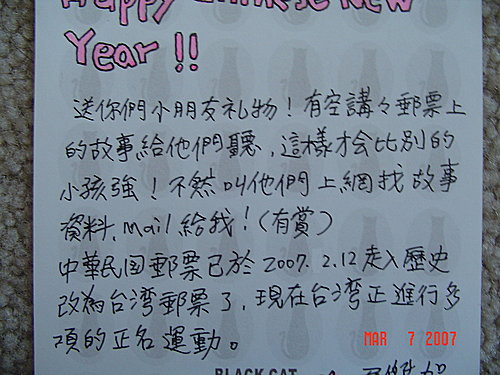 Happy Chinese New
Year !!
送你們小朋友礼物！有空講々郵票上
的故事給他們聽，這樣才会比別的
小孩強！不然叫他們上網找故事
資料，mail 給我！（有賞）
中華民国郵票已於 2007. 2.12 走入歷史
改為台湾郵票了，現在台湾正進行多
項的正名運動。
MAR 7 2007
BLACK CAT